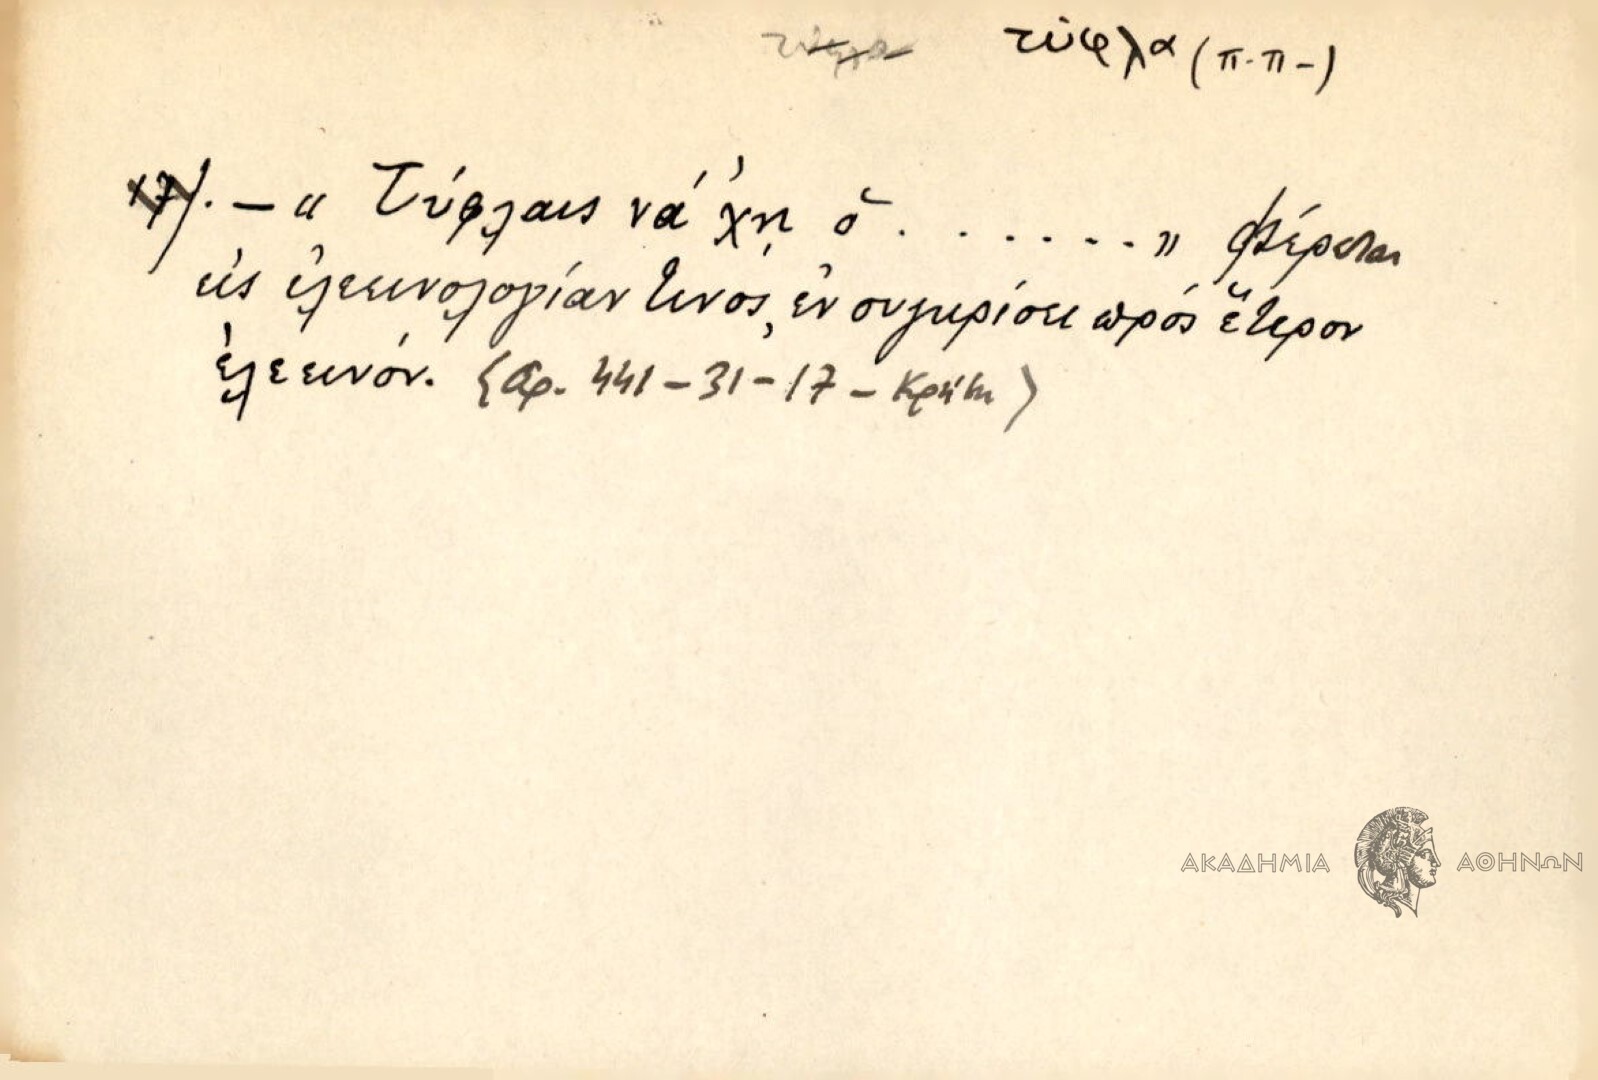 τύφλα τύφλα (π.π-)
17). – « Τύφλαις νά ᾽χῃ ὁ . . . . . . . » Φέρεται
εἰς ἐλεεινολογίαν τινός, ἐν συγκρίσει πρός ἕτερον
ἐλεεινόν. (Αρ. 441-31-17 - Κρήτη)
ΑΚΑΔΗΜΙΑ ΑΘΗΝΩΝ